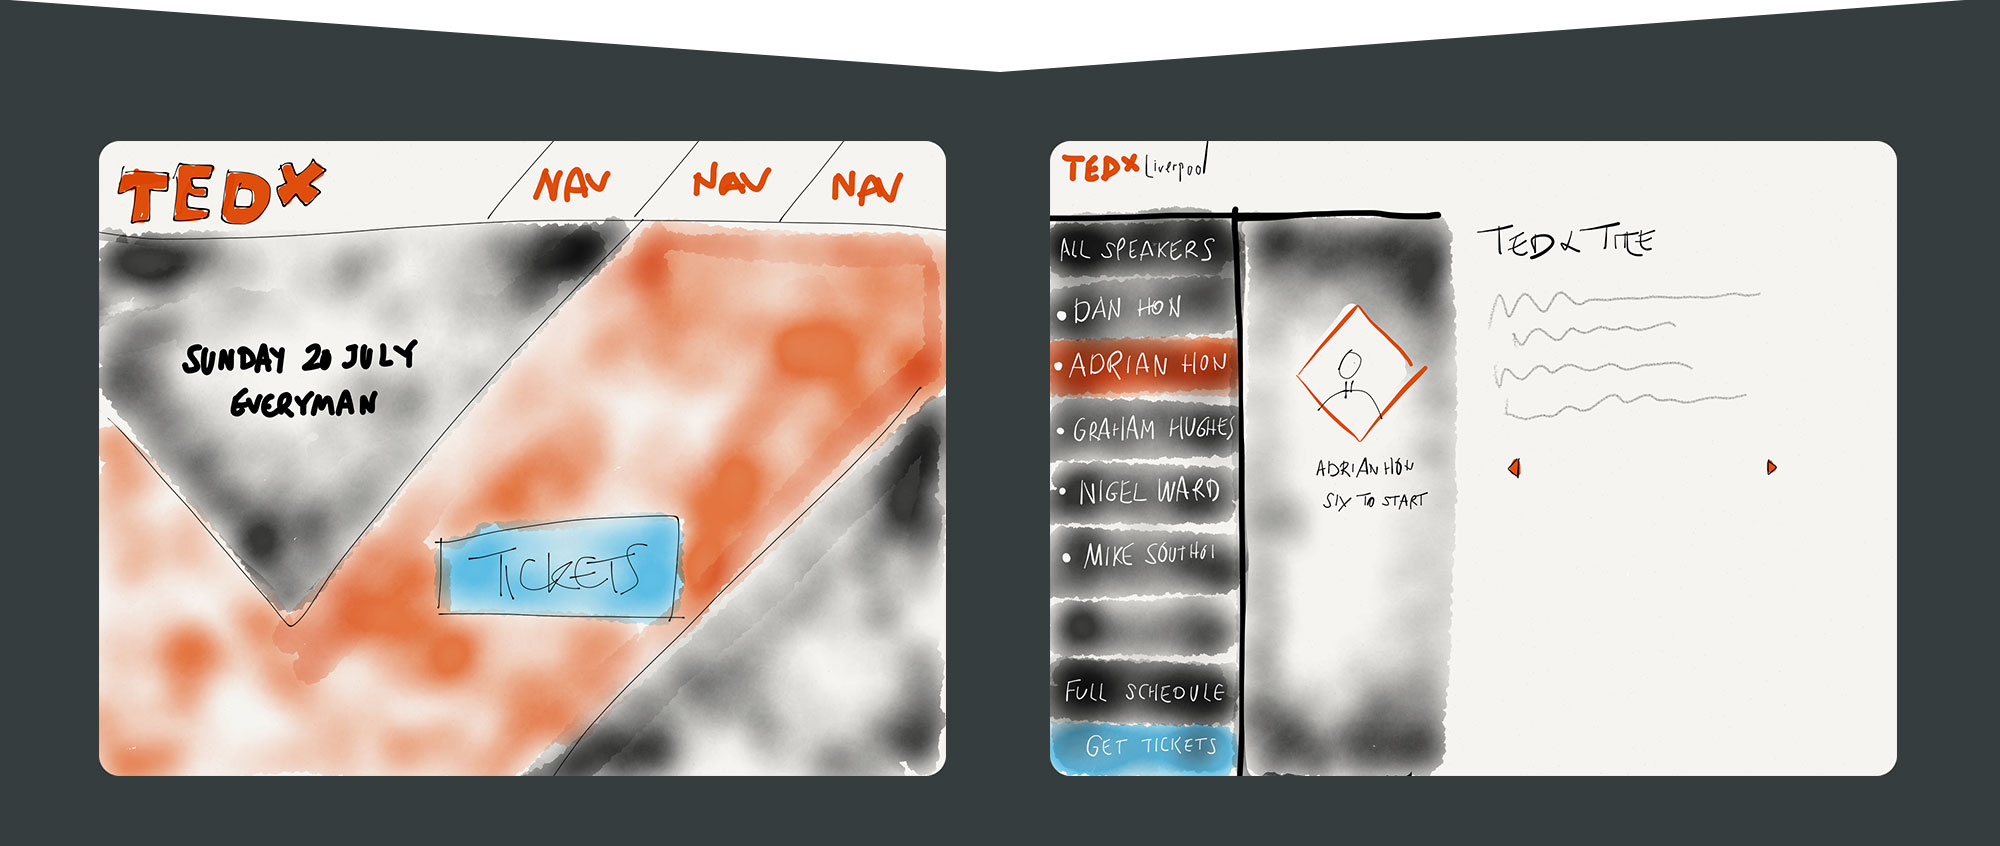 TEDX
NAV NAV NAV
SUNDAY 20 JULY
EVERYMAN
TICKETS
TEDX Liverpool
ALL SPEAKERS
• DAN HON
• ADRIAN HON
• GRAHAM HUGHES
• NIGEL WARD
• MIKE
FULL SCHEDULE
GET TICKETS
ADRIAN HON
SIX TO START
TEDX TITLE